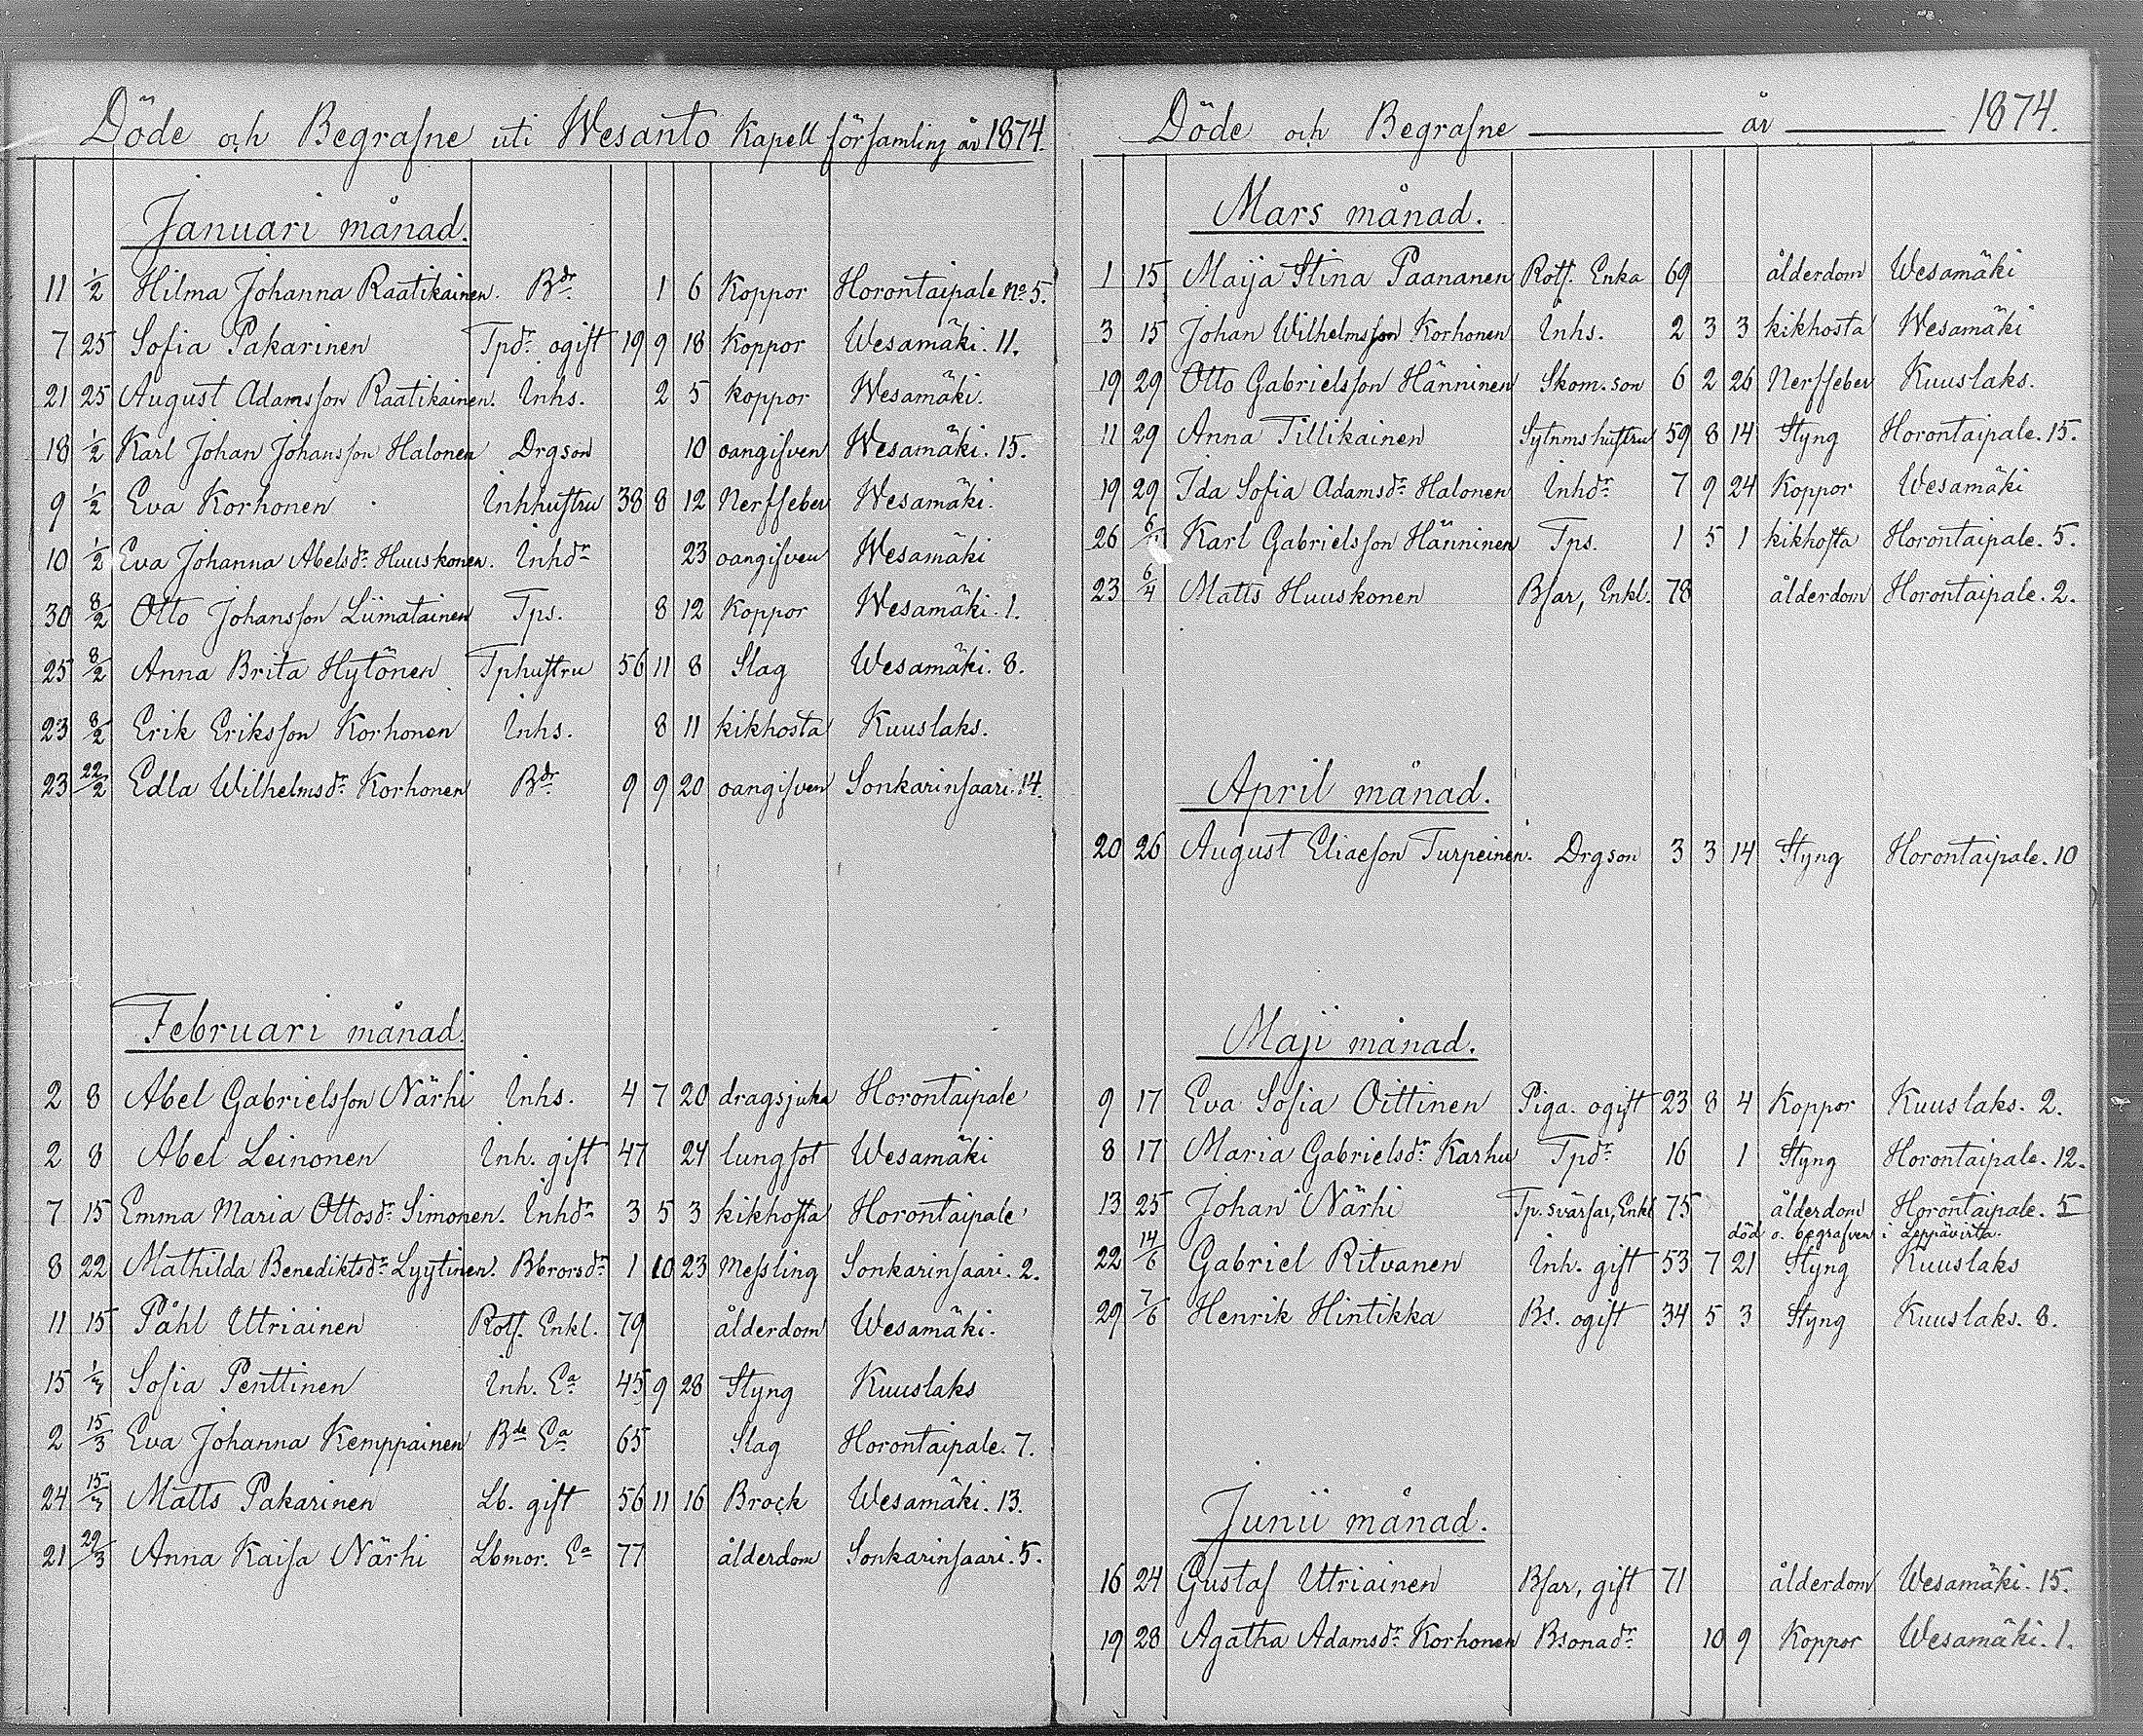 Döde och Begrafne uti Wesanto Kapell församling år 1874.
Januari månad.
11 1/2 Hilma Johanna Raatikainen. Bdr. 1 6 Koppor Horontaipale No 5.
7 25 Sofia Pakarinen Tpdr ogift 19 9 18 Koppor Wesamäki. 11.
21 25 August Adamsson Raatikainen. Inhs. 2 5 koppor Wesamäki.
18 1/2 Karl Johan Johansson Halonen Drgson 10 oangifven Wesamäki. 15.
9 1/2 Eva Korhonen Inhhustru 38 8 12 Nerffeber Wesamäki.
10 1/2 Eva Johanna Abelsdr Huuskonen. Inhdr 23 oangifven Wesamäki
30 8/2 Otto Johansson Liimatainen Tps. 8 12 Koppor Wesamäki. 1.
25 8/2 Anna Brita Hytönen Tphustru 56 11 8 Slag Wesamäki. 8.
23 8/2 Erik Eriksson Korhonen Inhs. 8 11 kikhosta Kuuslaks.
23 22/2 Edla Wilhelmsdr Korhonen Bdr 9 9 20 oangifven Sonkarinsaari. 14.
Februari månad.
2 8 Abel Gabrielsson Närhi Inhs. 4 7 20 dragsjuka Horontaipale
2 8 Abel Leinonen Inh. gift 47 24 lungsot Wesamäki
7 15 Emma Maria Ottosdr Simonen. Inhdr 3 5 3 kikhosta Horontaipale
8 22 Mathilda Benediktsdr Lyytinen. Bbrorsdr 1 10 23 Messling Sonkarinsaari. 2.
11 15 Påhl Utriainen Rotf. Enkl. 79 ålderdom Wesamäki.
15 1/3 Sofia Penttinen Inh. Ea 45 9 28 Styng Kuuslaks
2 15/3 Eva Johanna Kemppainen Bde Ea 65 Slag Horontaipale. 7.
24 15/3 Matts Pakarinen Lb. gift 56 11 16 Brock Wesamäki. 13.
21 29/3 Anna Kaisa Närhi Lbmor. Ea 77 ålderdom Sonkarinsaari. 5.
Döde och Begrafne år 1874.
Mars månad.
1 15 Maija Stina Paananen Rotf. Enka 69 ålderdom Wesamäki
3 15 Johan Wilhelmsson Korhonen Inhs. 2 3 3 kikhosta Wesamäki
19 29 Otto Gabrielsson Hänninen Skom. son 6 2 26 Nerffeber Kuuslaks.
11 29 Anna Tillikainen Sytnmshustru 59 8 14 Styng Horontaipale. 15.
19 29 Ida Sofia Adamsdr Halonen Inhdr 7 9 24 Koppor Wesamäki
26 6/4 Karl Gabrielsson Hänninen Tps. 1 5 1 kikhosta Horontaipale. 5.
23 6/4 Matts Huuskonen Bfar, Enkl. 78 ålderdom Horontaipale. 2.
April månad.
20 26 August Eliaeson Turpeinen. Drgson 3 3 14 Styng Horontaipale. 10
Maji månad.
9 17 Eva Sofia Oittinen Piga. ogift 23 8 4 Koppor Kuuslaks. 2.
8 17 Maria Gabrielsdr Karhu Tpdr 16 1 Styng Horontaipale. 12.
13 25 Johan Närhi Tp. svärfar, Enkl 75 ålderdom Horontaipale. 5
död o. begrafven i Leppävirta.
22 14/6 Gabriel Ritvanen Inh. gift 53 7 21 Styng Kuuslaks
29 7/6 Henrik Hintikka Bs. ogift 34 5 3 Styng Kuuslaks. 8.
Junii månad.
16 24 Gustaf Utriainen Bfar, gift 71 ålderdom Wesamäki. 15.
19 28 Agatha Adamsdr Korhonen Bsonadr 10 9 Koppor Wesamäki. 1.